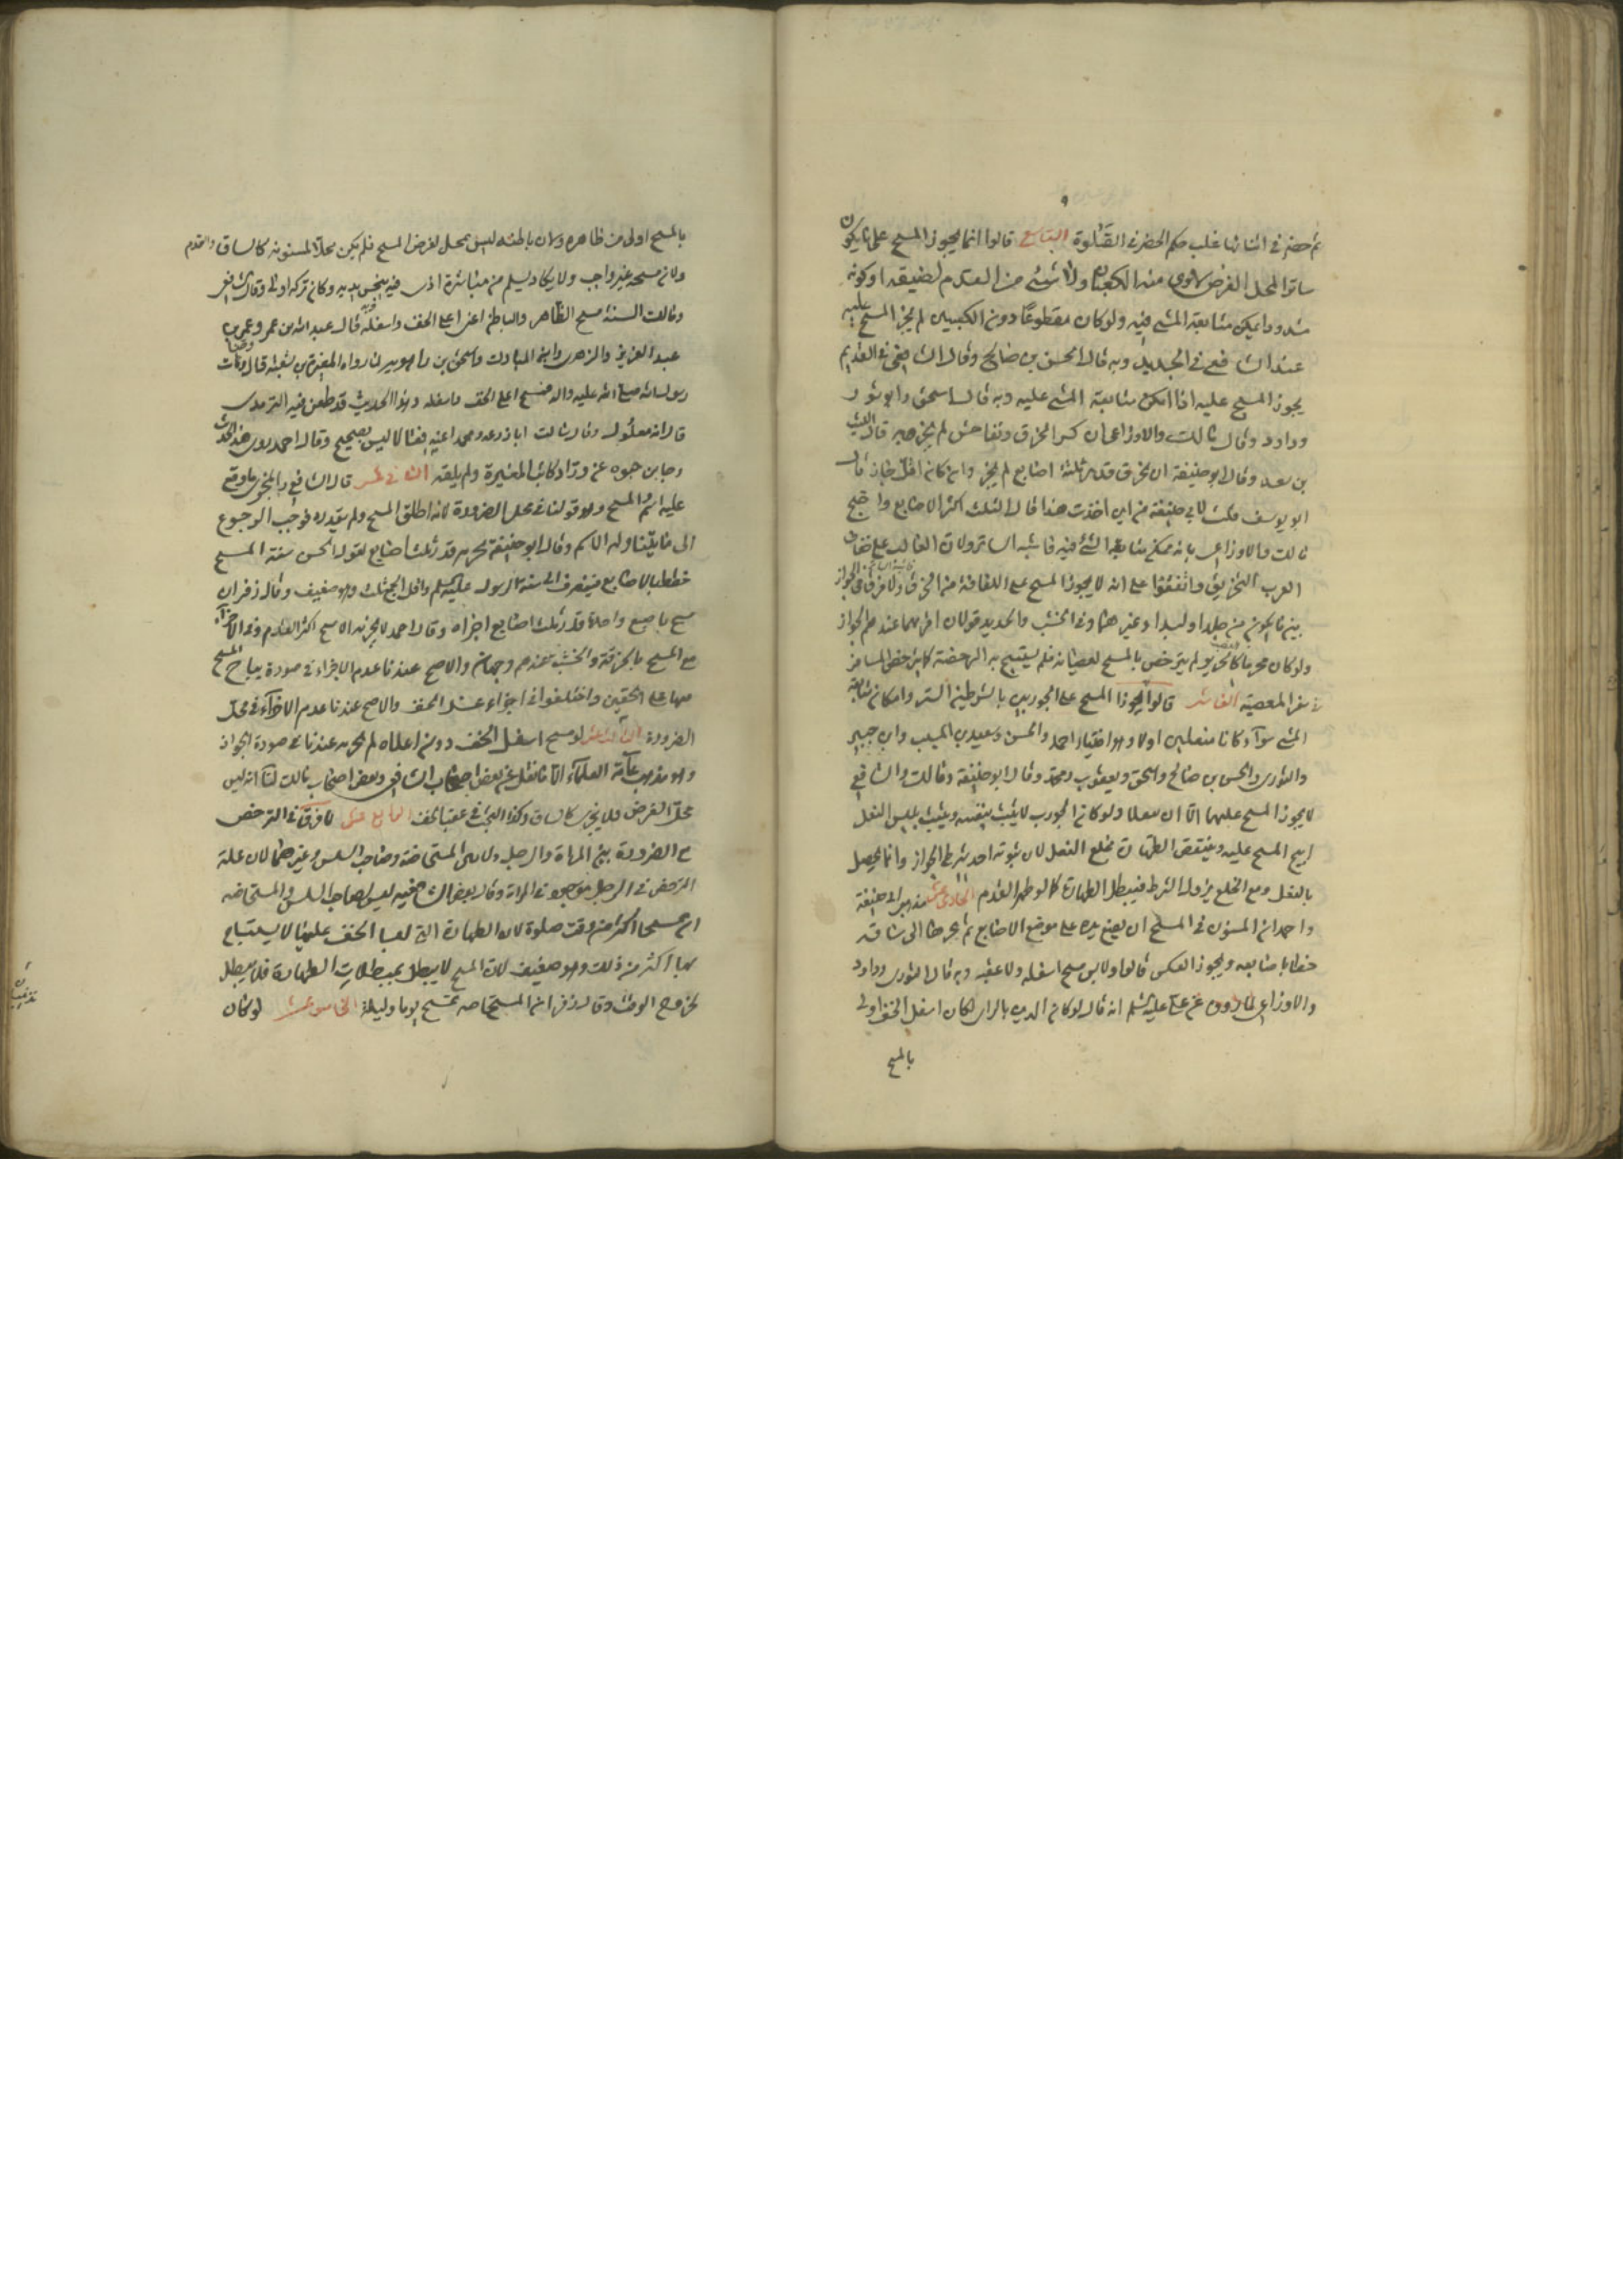 ثم حضر في اثنائها غلب حكم الحضر في الصلوة التاسع قالوا انما يجوز المسح على ما يكون
ساترا لمحل الفرض لا يرى منه الكعبان ولا شئ من القدم لضيقه او كونه
مشدودا يمكن متابعة المشي فيه ولو كان مقطوعا دون الكعبين لم يجز المسح عليه
عند الشافعي في الجديد وبه قال الحسن بن صالح وقال الشافعي في القديم
يجوز المسح عليه اذا امكن متابعة المشي عليه وبه قال اسحق وابو ثور
وداود وقال مالك والاوزاعي ان كثر الخرق وتفاحش لم يجز قال الليث
بن سعد وقال ابو حنيفة ان تخرق قدر ثلثة اصابع لم يجز وان كان اقل جاز قال
ابو يوسف قلت لابي حنيفة من اين اخذت هذا قال الثلث اكثر الاصابع واحتج
مالك والاوزاعي بانه يمكن متابعة المشي فيه فاشبه الساتر ولان الغالب على خفاف
العرب التخريق واتفقوا على انه لا يجوز المسح على اللفافة من الخرق ولا فرق في الجواز
بين ما يكون من جلد او لبد او غيرهما وفي الخشب والحديد قولان اقربهما عندهم الجواز
ولو كان محرما كالحرير لم يترخص بالمسح لعصيانه فلم يستبح به الرخصة كما لا يترخص المسافر
في سفر المعصية العاشر قالوا يجوز المسح على الجوربين بالشرطين الستر وامكان متابعة
المشي سواء كانا منعلين اولا وهو اختيار احمد والحسن وسعيد بن المسيب وابن جبير
والثوري والحسن بن صالح واسحق ويعقوب ومحمد وقال ابو حنيفة ومالك والشافعي
لا يجوز المسح عليهما الا ان ينعلا ولو كان الجورب لا يثبت بنفسه ويثبت بلبس النعل
ابيح المسح عليه وينتقض الطهارة بخلع النعل لان ثبوته احد شرطي الجواز وانما يحصل
بالنعل ومع الخلع يزول الشرط فيبطل الطهارة كما لو ظهر القدم الحادي عشر مذهب ابي حنيفة
واحمد ان المسنون في المسح ان يضع يده على موضع الاصابع ثم يجرها الى ساقه
خطا باصابعه ويجوز العكس قالوا ولا يسن مسح اسفله ولا عقبه وبه قال الثوري وداود
والاوزاعي لما روي عن علي عليه السلم انه قال لو كان الدين بالراي لكان اسفل الخف اولى
بالمسح
بالمسح اولى من ظاهره ولان باطنه ليس بمحل لفرض المسح فلم يكن محلا لمسنونه كالساق والقدم
ولان مسحه غير واجب ولا يكاد يسلم من مباشرة اذى فيه ينجس يديه وكان تركه اولى وقال الشافعي
ومالك السنة مسح الظاهر والباطن اعني اعلى الخف واسفله وبه قال عبد الله بن عمر وعمر بن
عبد العزيز والزهري وابن المبارك واسحق بن راهويه لما رواه المغيرة بن شعبة قال وضات
رسول الله صلى الله عليه واله فمسح اعلى الخف واسفله وهذا الحديث قد طعن فيه الترمذي
قال انه معلول وقال سالت ابا زرعة ومحمدا عنه فقالا ليس بصحيح وقال احمد روى هذا الحديث
رجا بن حيوه عن وراد كاتب المغيرة ولم يلقه الثاني عشر قال الشافعي المجزي ما وقع
عليه اسم المسح وهو قولنا في محل الضرورة لانه اطلق المسح ولم يقدره فوجب الرجوع
الى ما يتناوله الاسم وقال ابو حنيفة يجزيه قدر ثلث اصابع لقول الحسن سنة المسح
خططا بالاصابع فينصرف الى سنة الرسول عليه السلم واقل الجمع ثلث وهو ضعيف وقال زفر ان
مسح باصبع واحدة قدر ثلث اصابع اجزاه وقال احمد لا يجزيه الا مسح اكثر القدم وفي الاجزاء
مع المسح بالخرقة والخشب عندهم وجهان والاصح عندنا عدم الاجزاء في صورة يباح المسح
فيها على الخفين واختلفوا في اجزاء غسل الخف والاصح عندنا عدم الاجزاء في محل
الضرورة الثالث عشر لو مسح اسفل الخف دون اعلاه لم يجزيه عندنا في صورة الجواز
وهو مذهب عامة العلماء الا ما نقل عن بعض اصحاب الشافعي وبعض اصحاب مالك لنا انه ليس
محل الفرض فلا يجزي كالساق وكذا البحث في عقب الخف الرابع عشر لا فرق في الترخص
مع الضرورة بين المراة والرجل ولا بين المستحاضة وصاحب السلس وغيرهما لان علة
الترخص في الرجل موجودة في المراة وقال بعض الشافعيه ليس لصاحب السلس والمستحاضه
ان يمسحا اكثر من وقت صلوة لان الطهارة التي لبسا الخف عليها لا يستباح
بها اكثر من ذلك وهو ضعيف لان المسح لا يبطل بمبطلات الطهارة فلا يبطل
بخروج الوقت وقال زفر ان المستحاضه تمسح يوما وليلة الخامس عشر لو كان